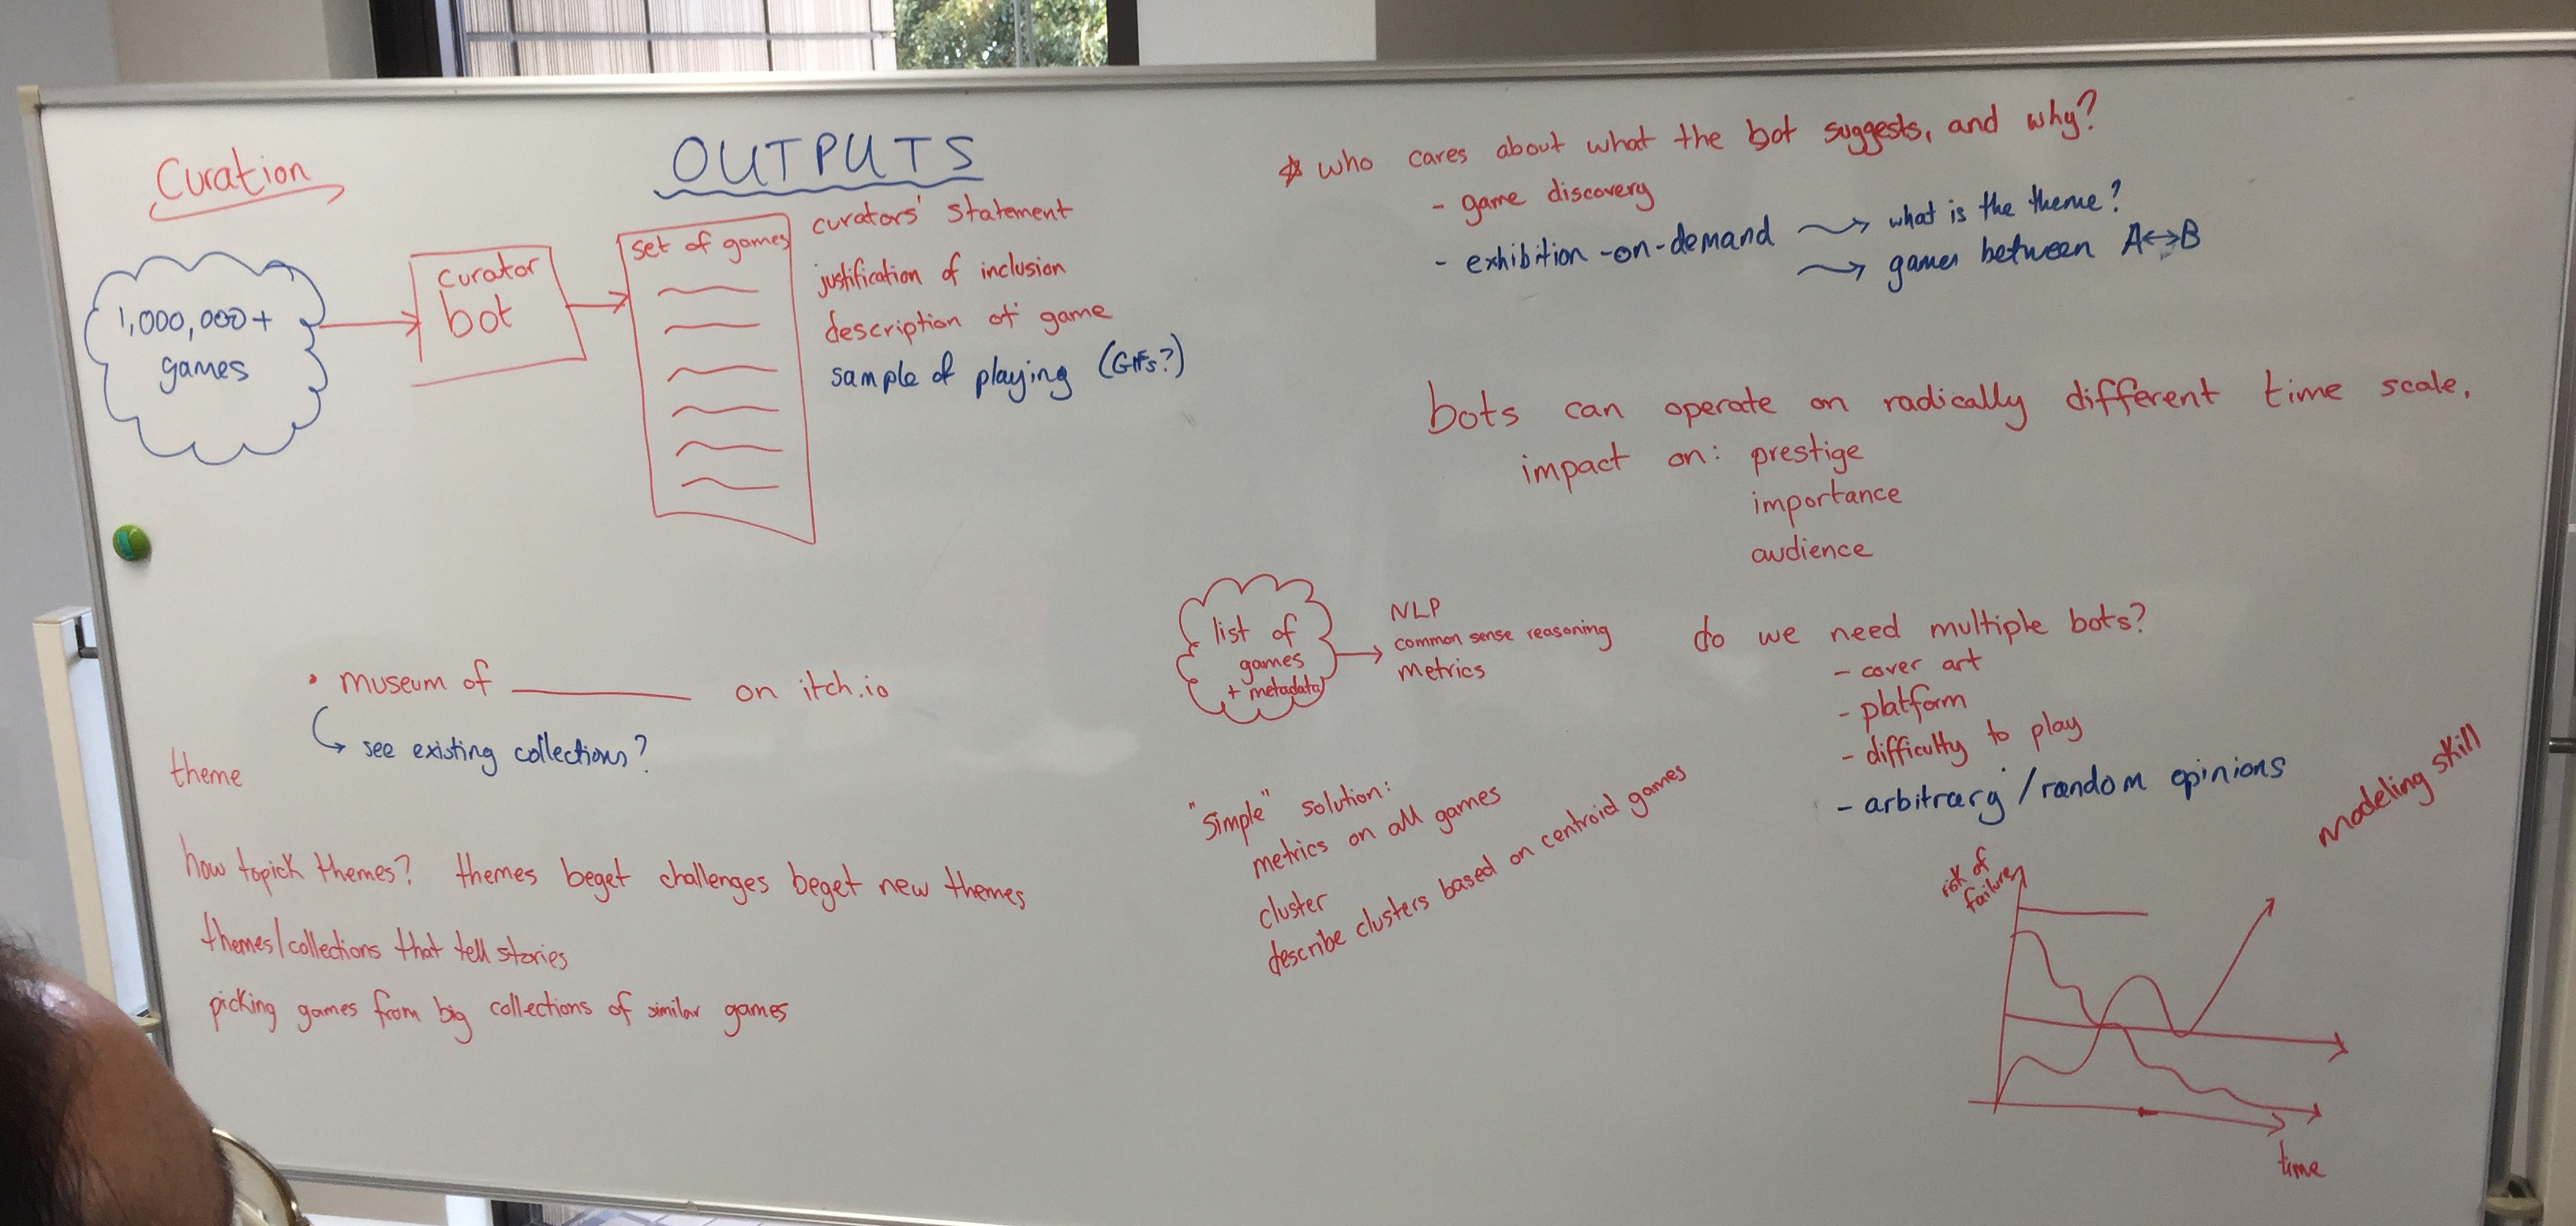 Curation
1,000,000+
games
curator
bot
OUTPUTS
set of games
curators' statement
justification of inclusion
description of game
sample of playing (GIFs?)
• museum of ________ on itch.io
see existing collections?
theme
how to pick themes? themes beget challenges beget new themes
themes/collections that tell stories
picking games from big collections of similar games
* who cares about what the bot suggests, and why?
- game discovery
- exhibition-on-demand
what is the theme?
games between A↔B
bots can operate on radically different time scale,
impact on: prestige
importance
audience
list of
games
+ metadata
NLP
common sense reasoning
metrics
do we need multiple bots?
- cover art
- platform
- difficulty to play
- arbitrary/random opinions
"simple" solution:
metrics on all games
cluster
describe clusters based on centroid games
modeling skill
risk of
failure
time